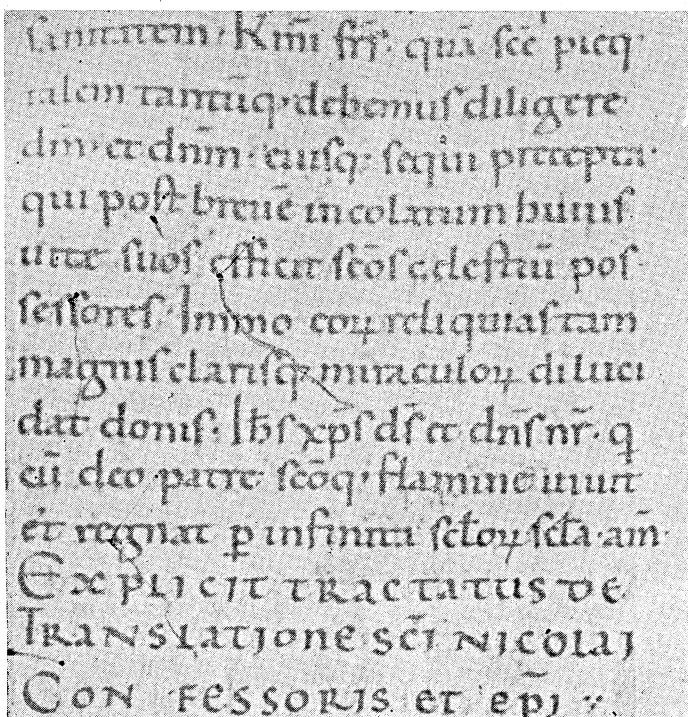 sanitatem. Km̄i fr̄s. quā scē pieq;
talem tantūq; debemus diligere
dm̄. et dnm̄. eiusq; sequi precepta.
qui post breuē incolatum huius
uite suos efficit scōs cęlestiū pos
sessores. Immo eoꝝ reliquias tam
magnis clarisq; miraculoꝝ diluci
dat donis. Ih̄s xp̄s d̄s et dn̄s nr̄. q
cū deo patre scōq; flamine uiuit
et regnat ꝑ infinita sc̄loꝝ sc̄la. am̄.
EXPLICIT TRACTATUS DE
TRANSLATIONE SC̄I NICOLAI
CONFESSORIS ET EP̄I